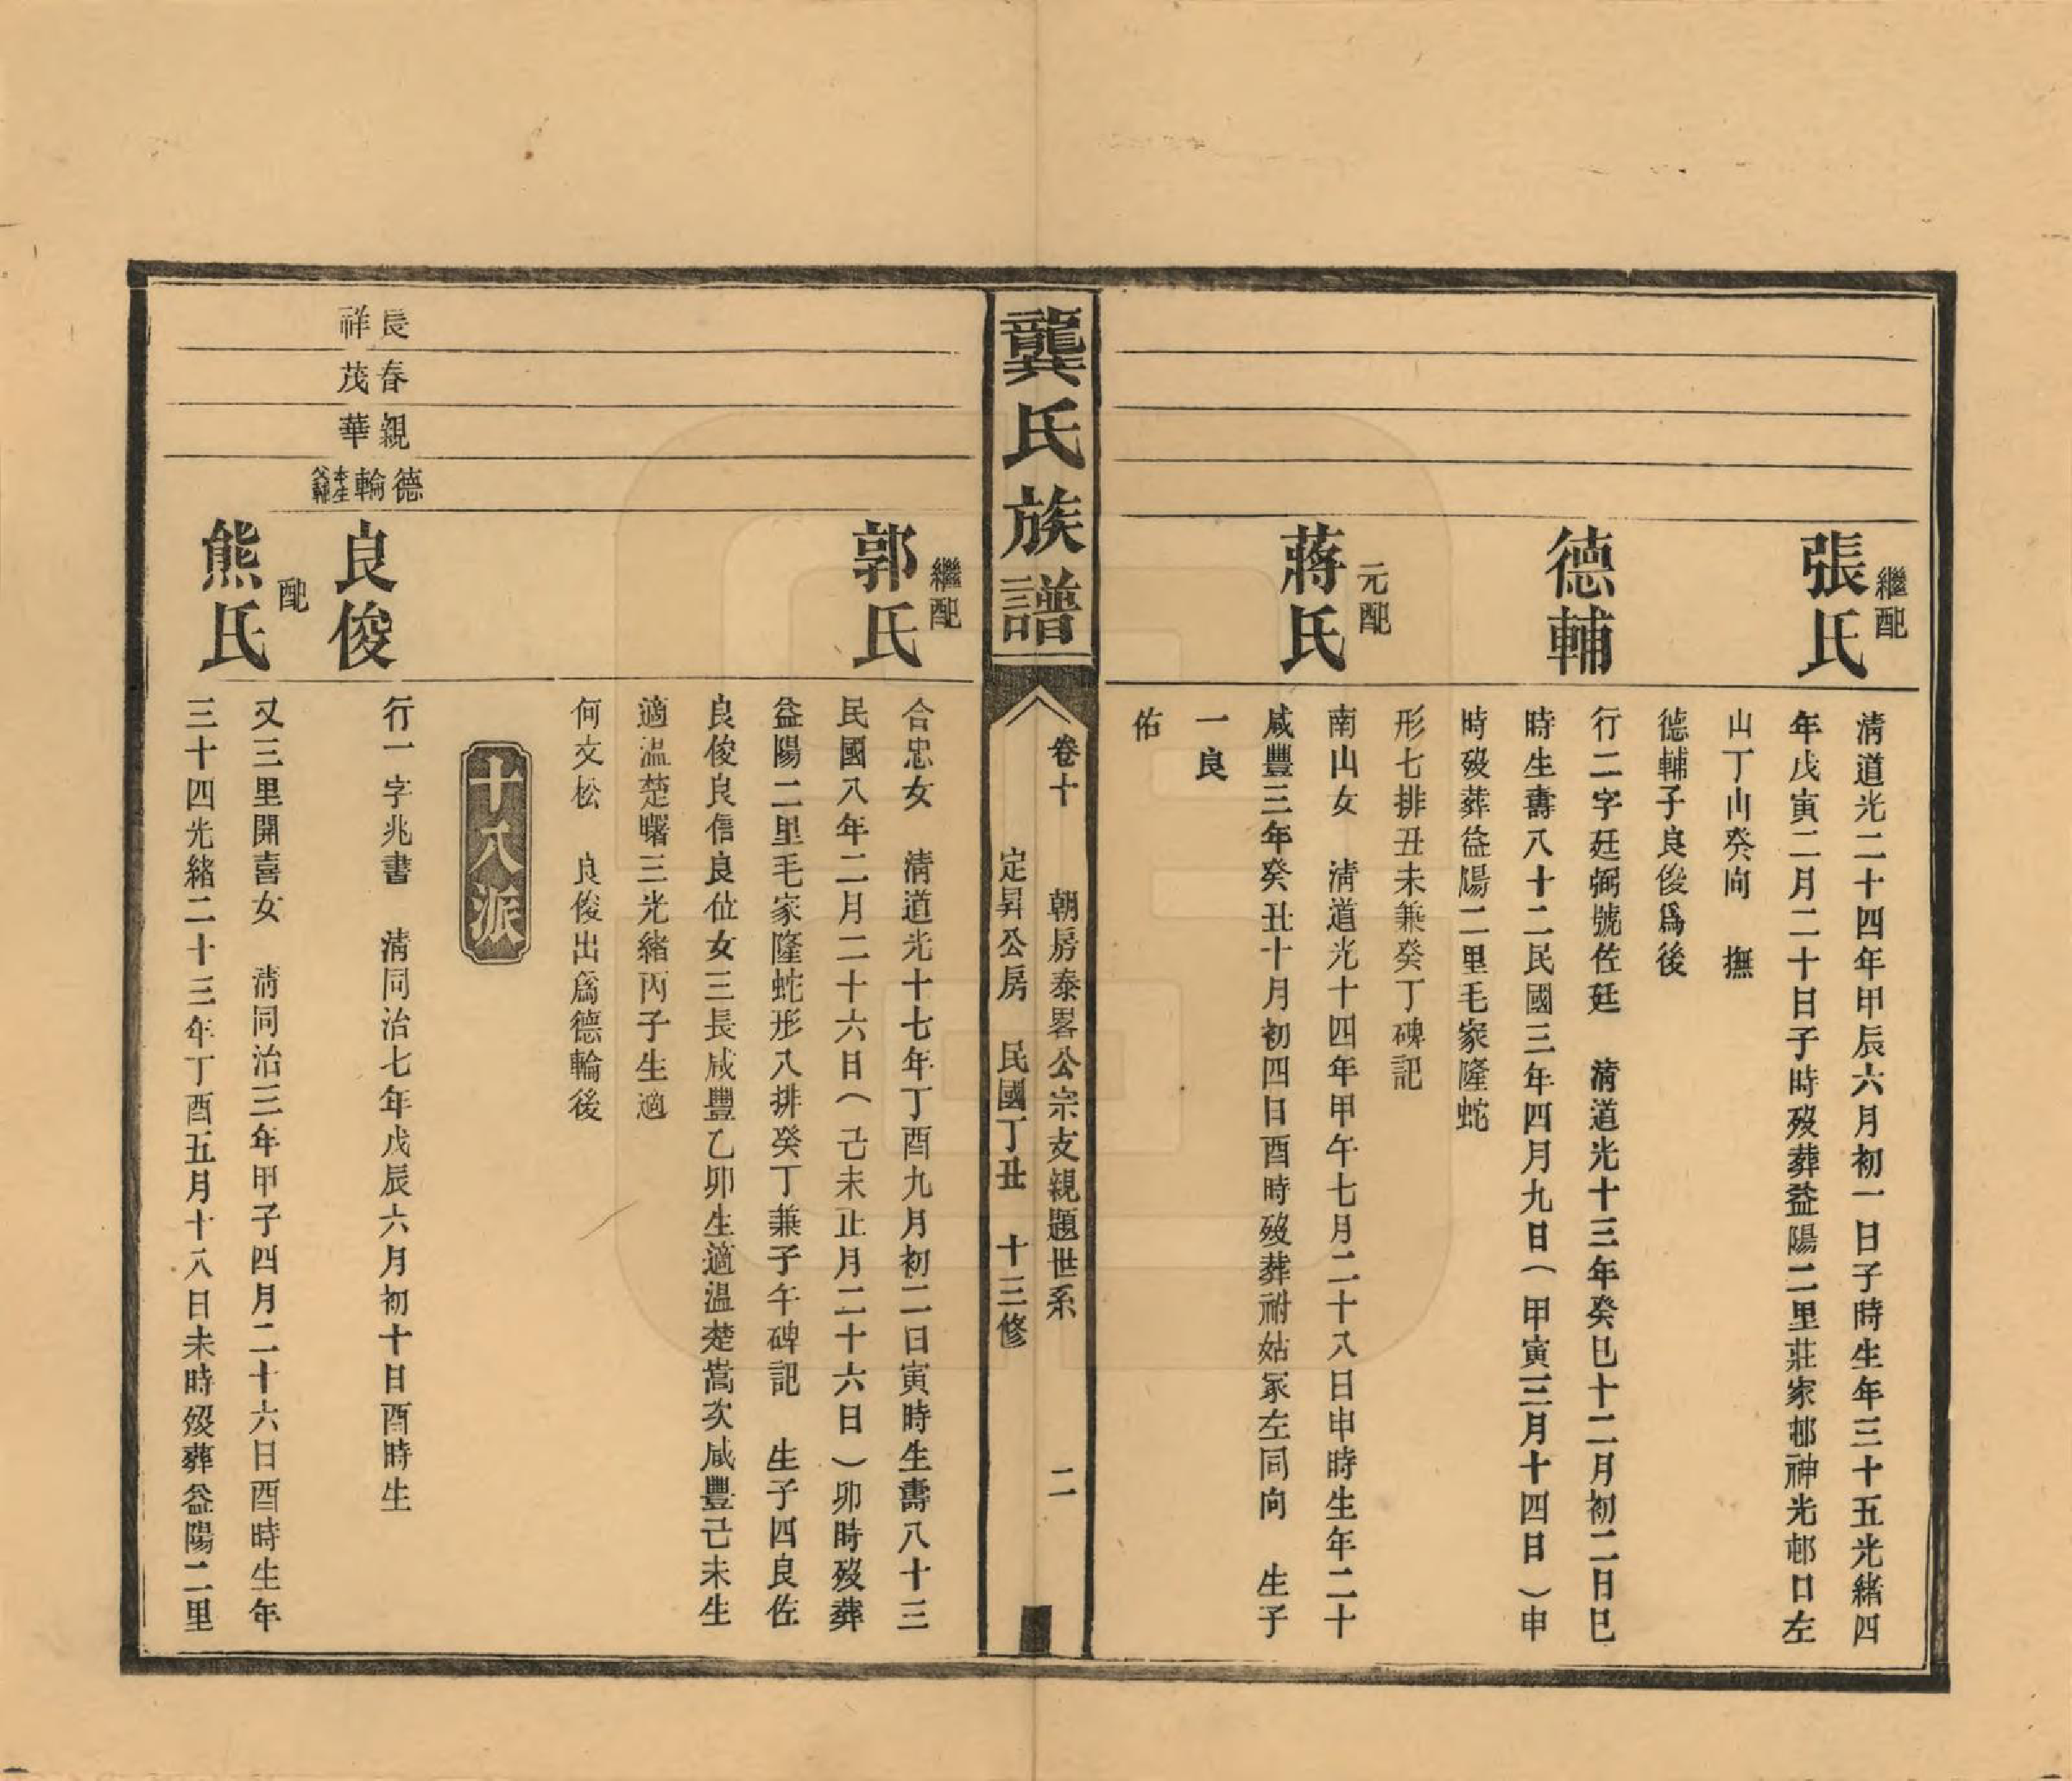 繼配
張氏
清道光二十四年甲辰六月初一日子時生年三十五光緒四
年戊寅二月二十日子時歿葬益陽二里莊家邨神光邨口左
山丁山癸向　撫
德輔子良俊爲後
德輔
行二字廷弼號佐廷　清道光十三年癸巳十二月初二日巳
時生壽八十二民國三年四月九日（甲寅三月十四日）申
時歿葬益陽二里毛家隆蛇
形七排丑未兼癸丁碑記
元配
蔣氏
南山女　清道光十四年甲午七月二十八日申時生年二十
咸豐三年癸丑十月初四日酉時歿葬祔姑冢左同向　生子
一良
佑
龔氏族譜
卷十　朝房泰畧公宗支親題世系　二
定昇公房　民國丁丑　十三修
繼配
郭氏
合忠女　清道光十七年丁酉九月初二日寅時生壽八十三
民國八年二月二十六日（己未正月二十六日）卯時歿葬
益陽二里毛家隆蛇形八排癸丁兼子午碑記　生子四良佐
良俊良信良位女三長咸豐乙卯生適溫楚嵩次咸豐己未生
適溫楚曙三光緒丙子生適
何交松　良俊出爲德輪後
十八派
長祥
春茂
親華
德輪本生父輔
良俊
行一字兆書　清同治七年戊辰六月初十日酉時生
配
熊氏
又三里開喜女　清同治三年甲子四月二十六日酉時生年
三十四光緒二十三年丁酉五月十八日未時歿葬益陽二里